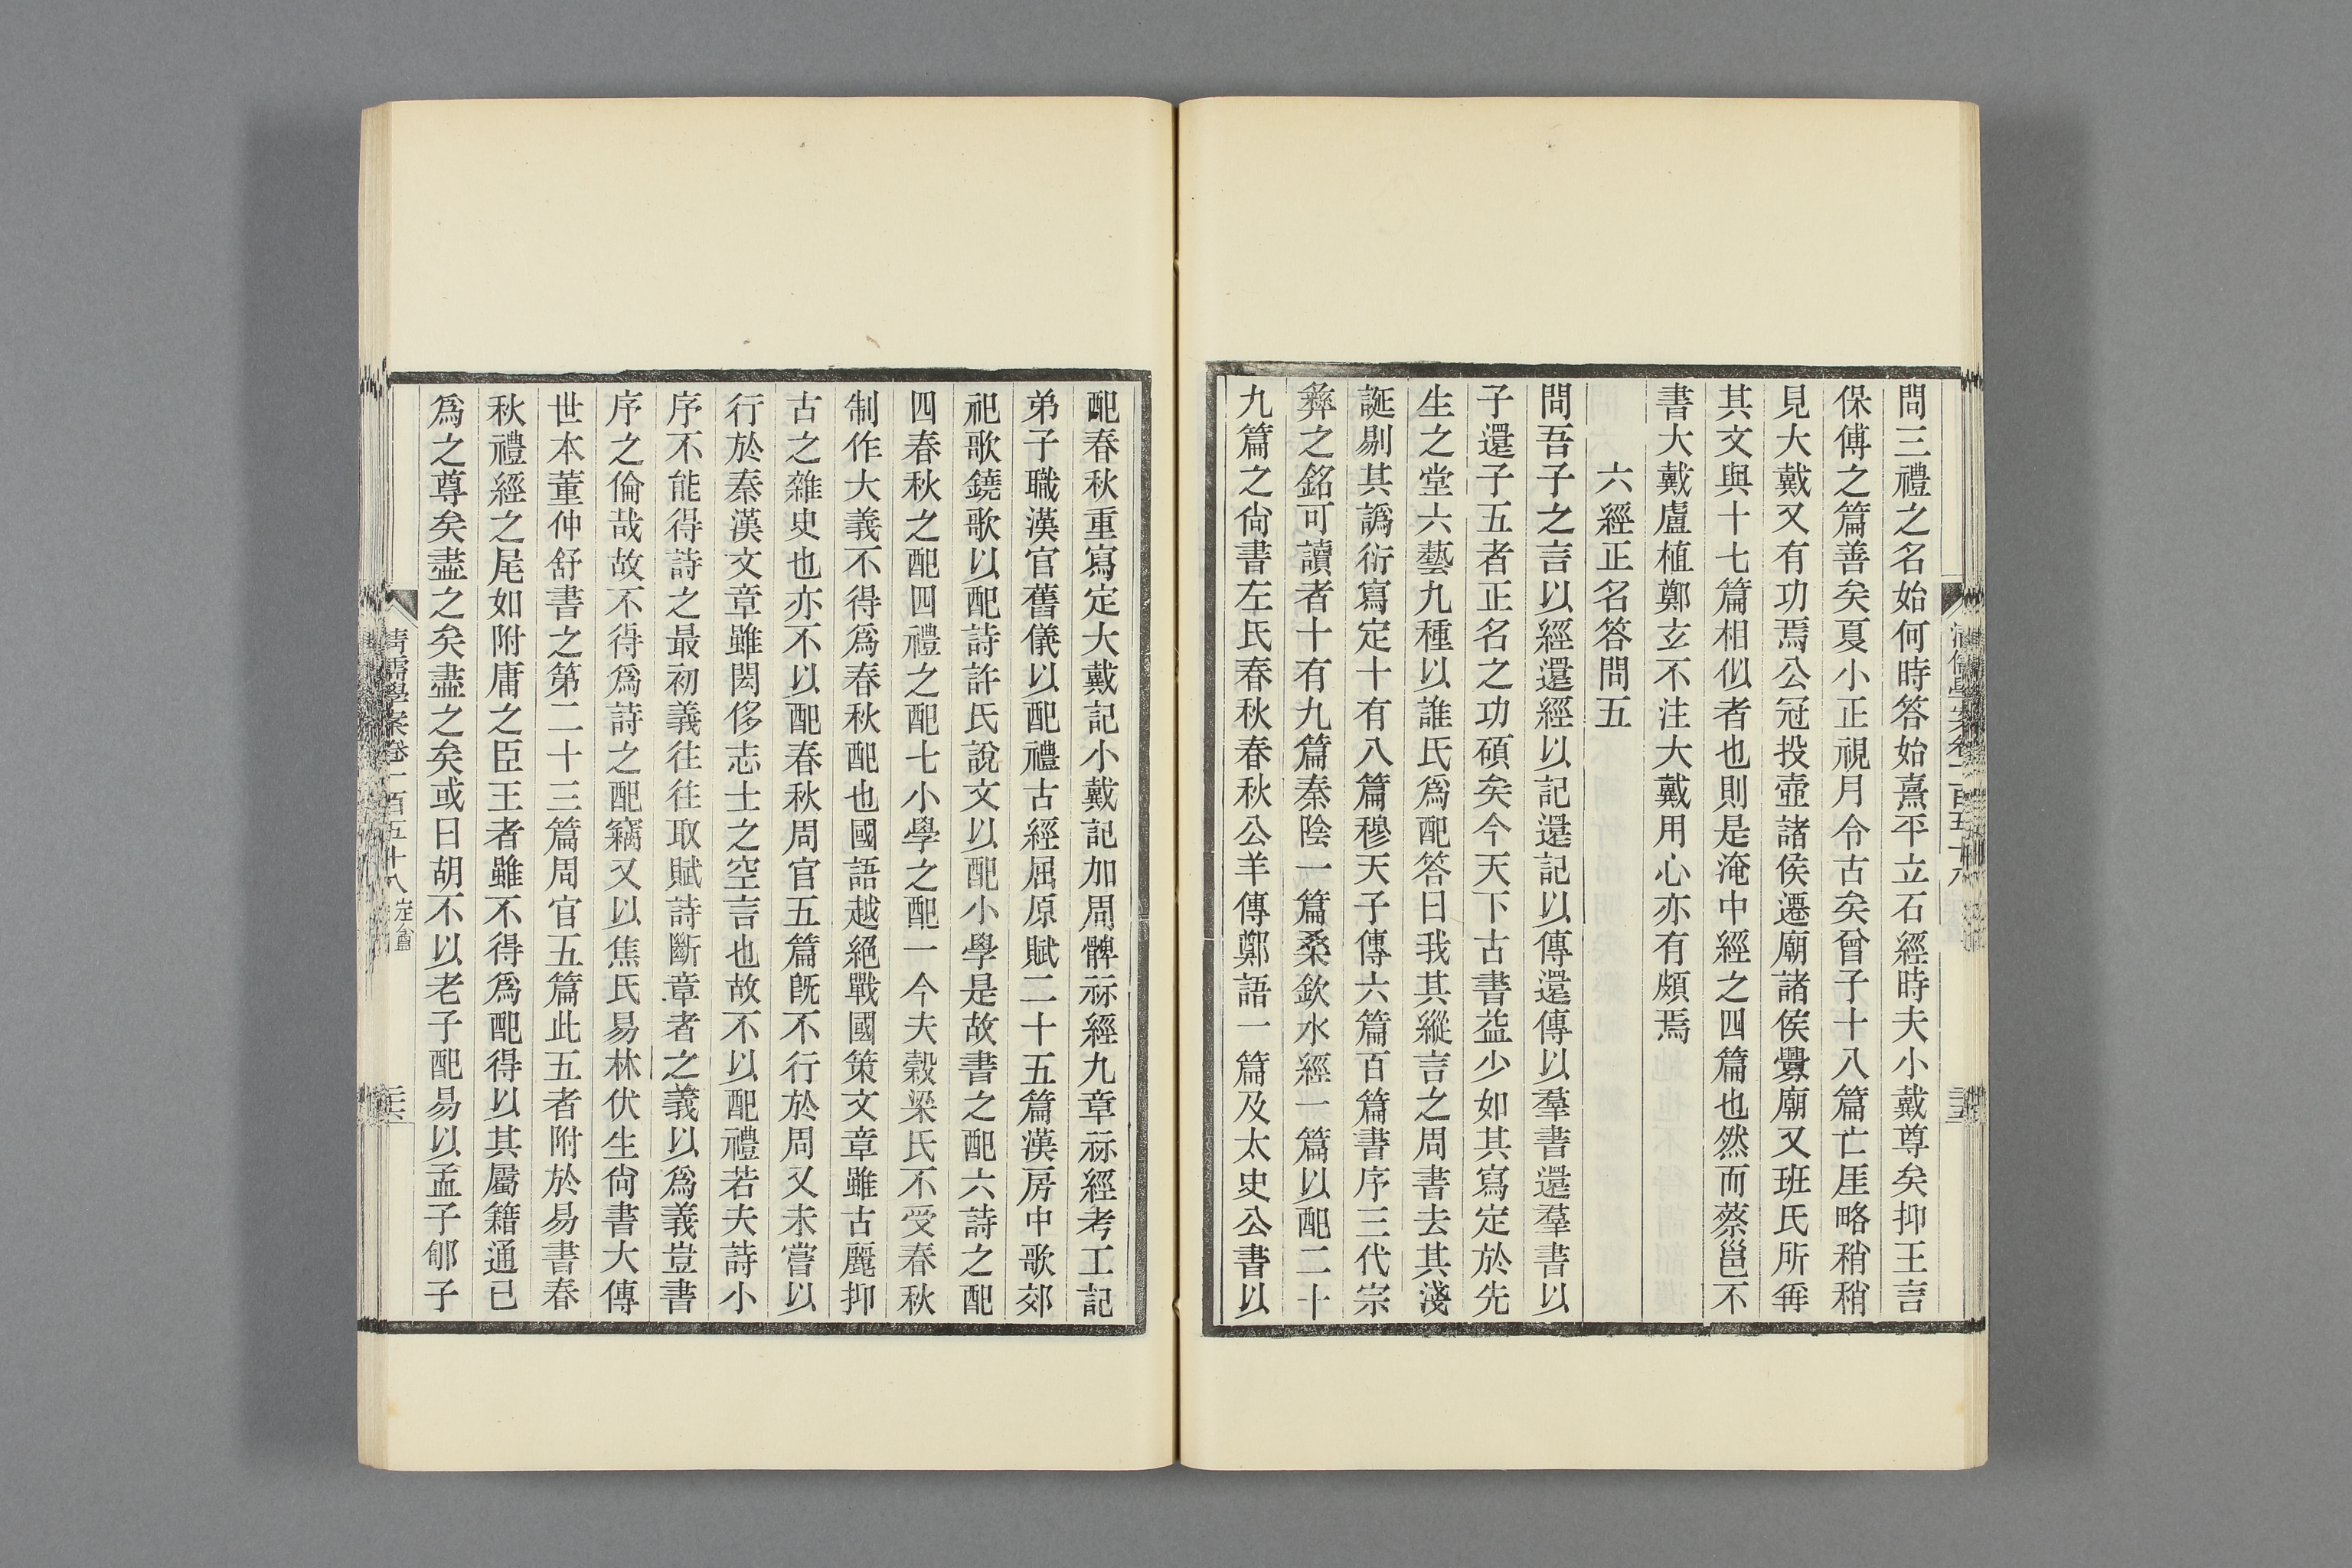 問三禮之名始何時答始熹平立石經時夫小戴尊矣抑王言
保傅之篇善矣夏小正視月令古矣曾子十八篇亡厓略稍稍
見大戴又有功焉公冠投壺諸侯遷廟諸侯釁廟又班氏所再
其文與十七篇相似者也則是淹中經之四篇也然而蔡邕不
書大戴盧植鄭玄不注大戴用心亦有頗焉
六經正名答問五
問吾子之言以經還經以記還記以傳還傳以羣書還羣書以
子還子五者正名之功碩矣今天下古書益少如其寫定於先
生之堂六藝九種以誰氏爲配答曰我其縱言之周書去其淺
誕剔其譌衍寫定十有八篇穆天子傳六篇百篇書序三代宗
彝之銘可讀者十有九篇秦陰一篇桑欽水經一篇以配二十
九篇之尙書左氏春秋春秋公羊傳鄭語一篇及太史公書以
清儒學案卷一百五十八
配春秋重寫定大戴記小戴記加周髀祘經九章祘經考工記
弟子職漢官舊儀以配禮古經屈原賦二十五篇漢房中歌郊
祀歌鐃歌以配詩許氏說文以配小學是故書之配六詩之配
四春秋之配四禮之配七小學之配一今夫穀梁氏不受春秋
制作大義不得爲春秋配也國語越絕戰國策文章雖古麗抑
古之雜史也亦不以配春秋周官五篇旣不行於周又未嘗以
行於秦漢文章雖閎侈志士之空言也故不以配禮若夫詩小
序不能得詩之最初義往往取賦詩斷章者之義以爲義豈書
序之倫哉故不得爲詩之配竊又以焦氏易林伏生尙書大傳
世本董仲舒書之第二十三篇周官五篇此五者附於易書春
秋禮經之尾如附庸之臣王者雖不得爲配得以其屬籍通已
爲之尊矣盡之矣盡之矣或曰胡不以老子配易以孟子郇子
清儒學案卷一百五十八 定盦